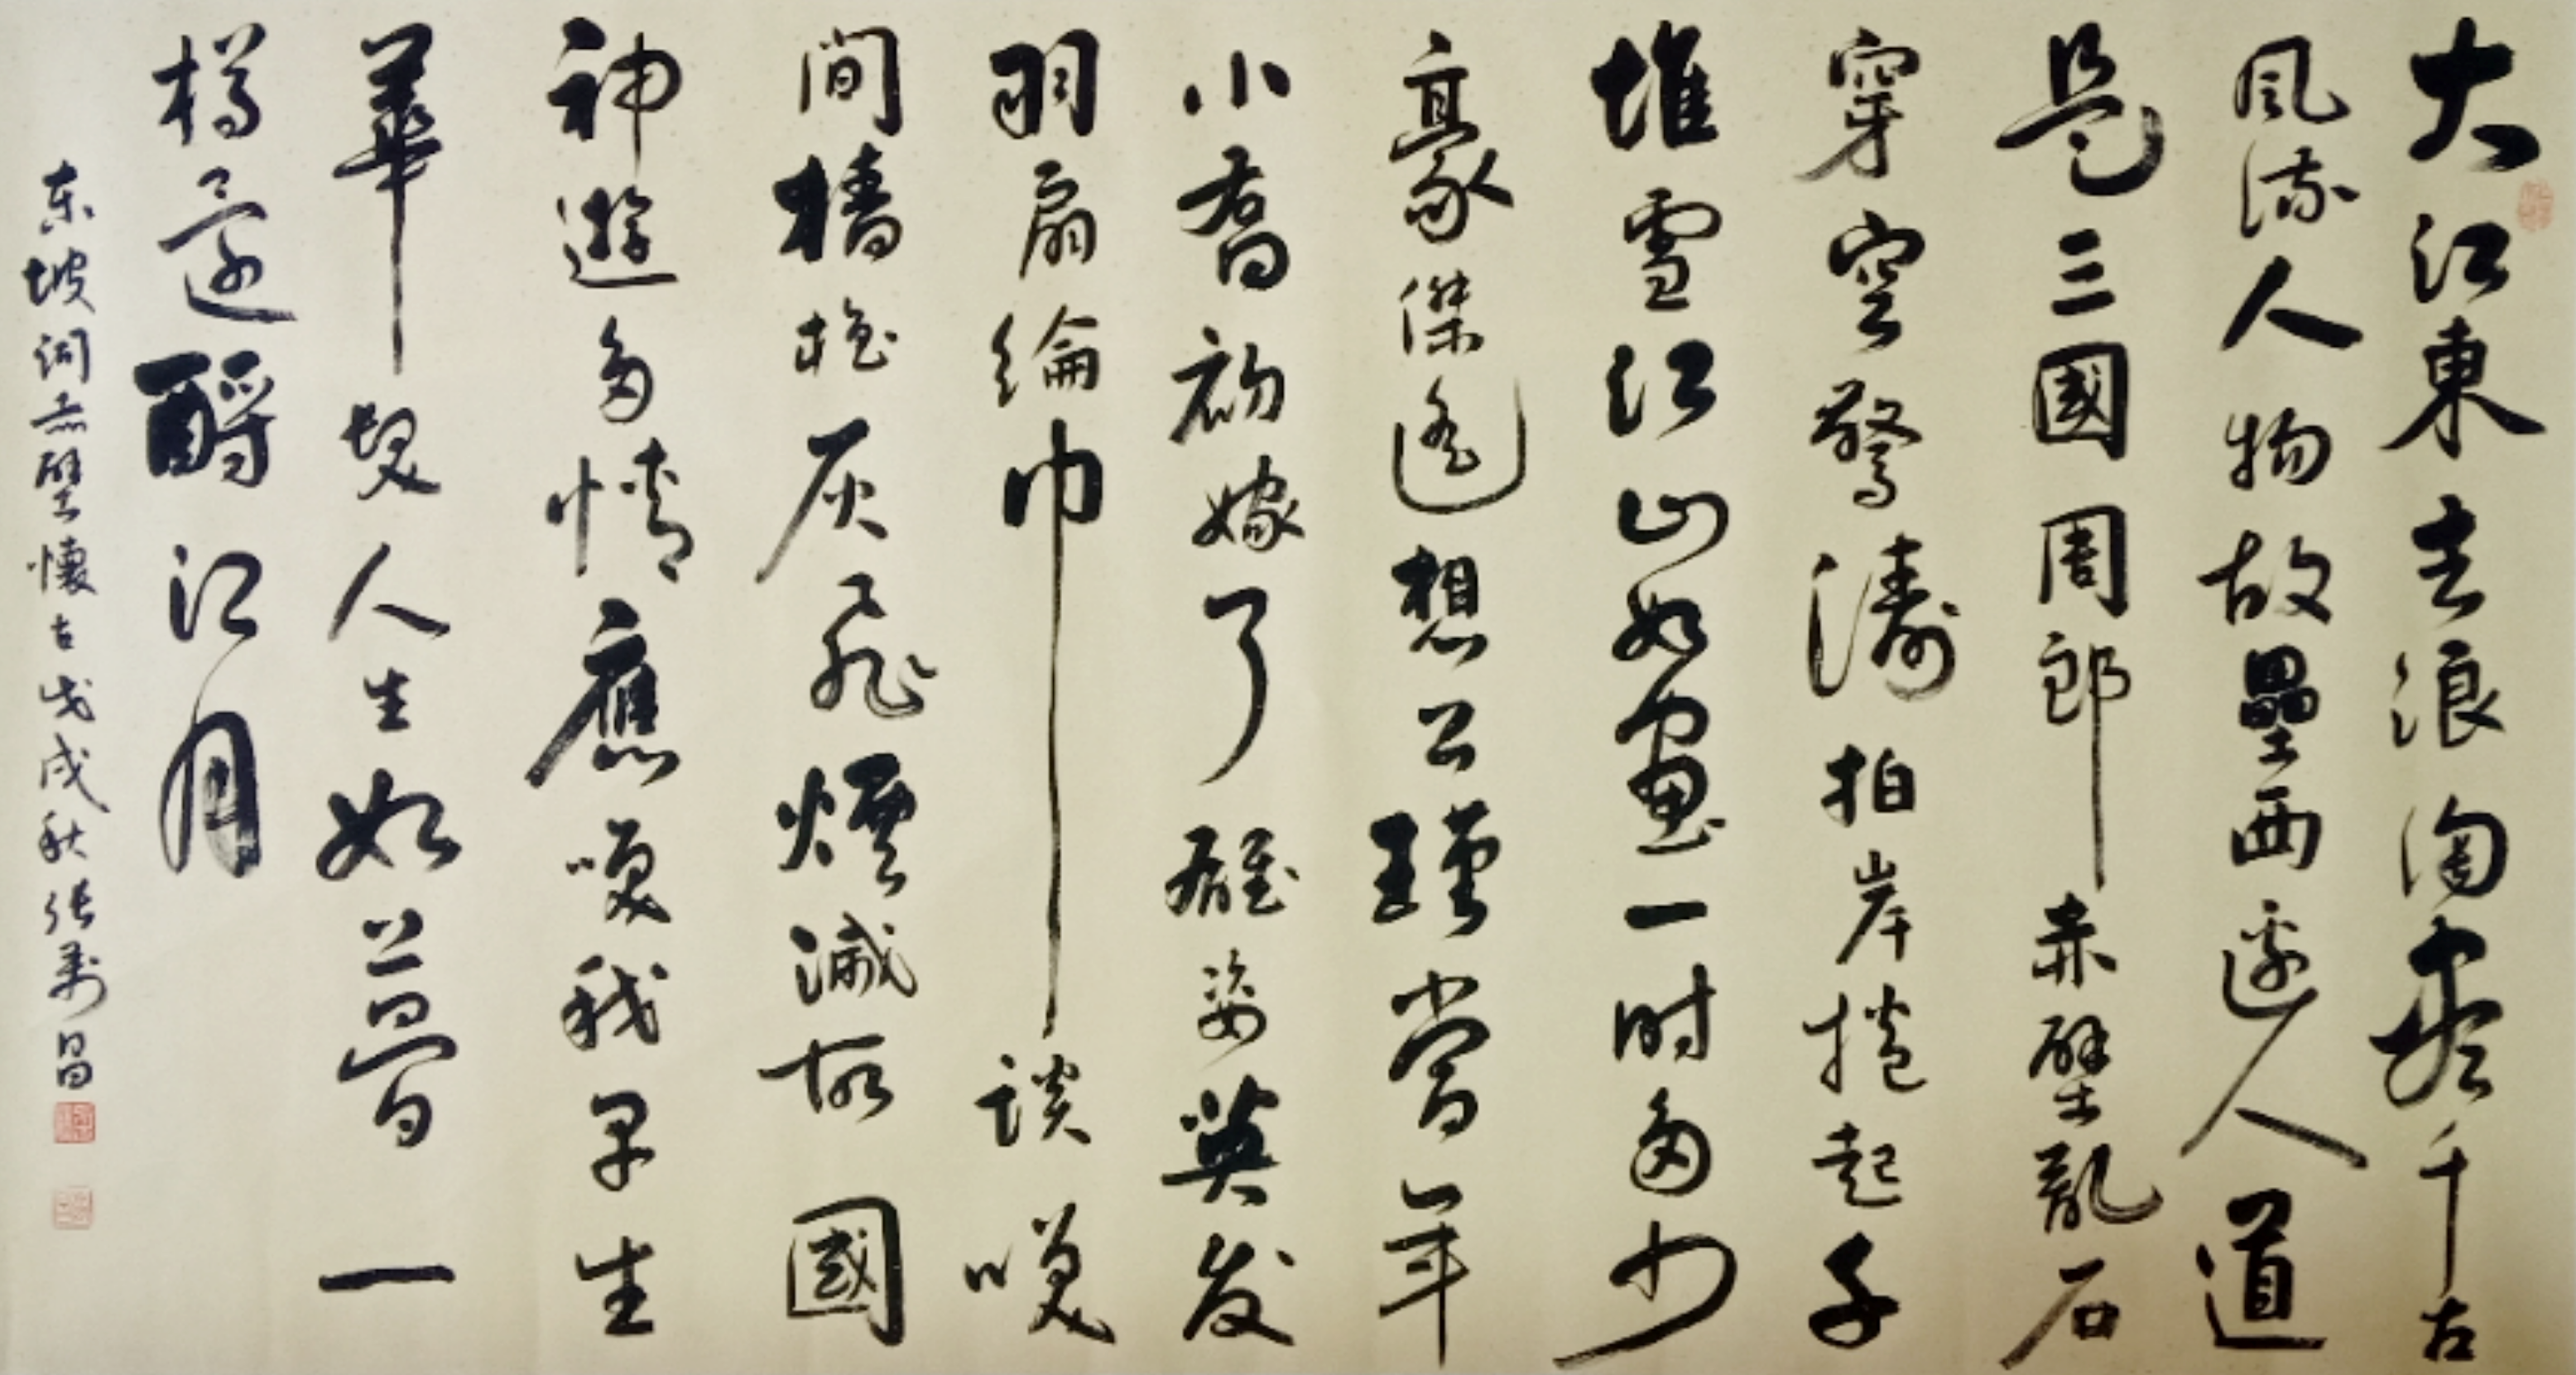 大江東去浪淘盡千古
風流人物故壘西邊人道
是三國周郎赤壁亂石
穿空驚濤拍岸捲起千
堆雪江山如畫一時多少
豪傑遙想公瑾當年
小喬初嫁了雄姿英发
羽扇綸巾談笑
間檣櫓灰飛煙滅故國
神遊多情應笑我早生
華髮人生如夢一
樽還酹江月
东坡词赤壁懷古戊戌秋张寿昌